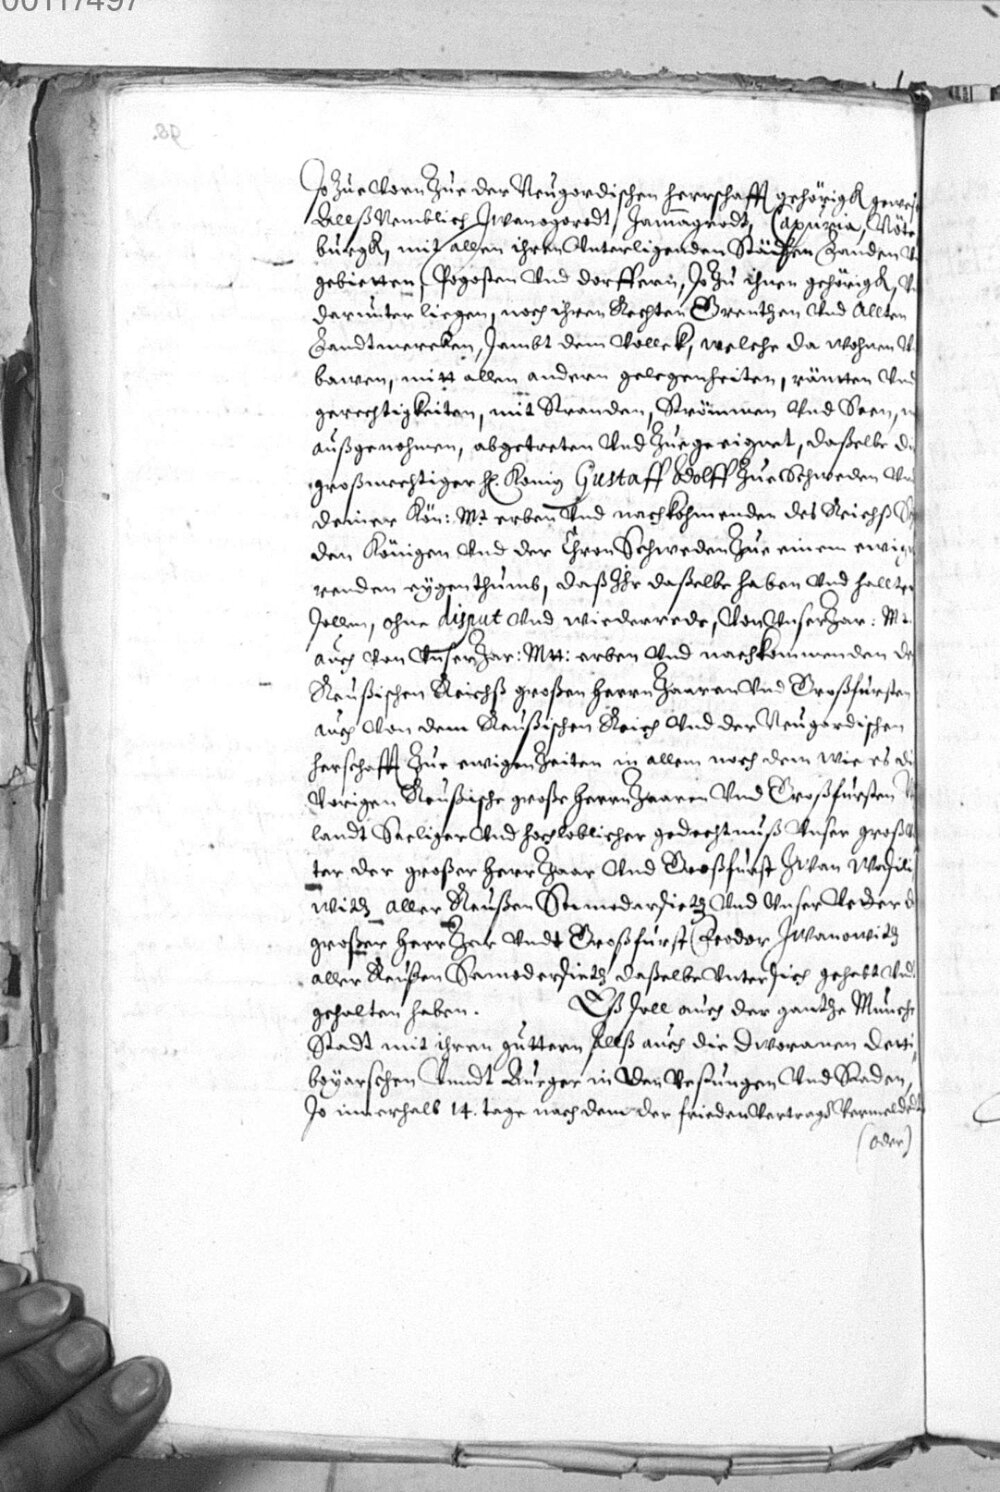 00117497
98.
So Zue Vorn Zue der Neugordischen herrschafft gehörigk gewes
Alleß Nemblich Iwanogorodt, Jamagrodt, Capuria, Nöte
burgk, mit allen ihren Unterligenden Städten Landen
gebietten, Pogosten Vnd dorffern, So Zu ihnen gehörigk,
darunter liegen, noch ihren Rechten Grentzen Vnd Allten
Landtmercken, sambt dem Vollck, welche da wohnen
bawen, mitt allen andern gelegenheiten, räntten Vnd
gerechtigkeiten, mit Stranden, Strömmen Vnd Seen,
außgenohmen, abgetreten Vnd Zuegeeignet, daßelbe
großmechtiger H. König Gustaff Adolff Zue Schweden Vnd
deiner Kön: Mt. erben Vnd nachkohmenden des Reichß
den Königen Vnd der Chron Schweden Zue einem
renden eygenthumb, daß Ihr daßelbe haben Vnd hallten
sollen, ohne disput Vnd wiederrede, Von Vnser Zar: Mt.
auch von Vnser Zar: Mtt: erben Vnd nachkommenden
Reußischen Reichß großen herrn Zaaren Vnd Großfursten
auch Von dem Reußischen Reich Vnd der Neugordischen
herschafft Zue ewigen Zeiten in allem noch dem wie es
Vorigen Reußische große herrn Zaaren Vnd Großfursten
landt Seeliger Vnd hochloblicher gedechtnuß Vnser
ter der großer herr Zaar Vnd Großfurst Iwan Wasili
witz aller Reußen Samodersietz Vnd Vnser Vetter
großer herr Zar Vndt Großfurst Feodor Iwanowitz
aller Reußen Samodersietz daßelbe Vnter sich gehabt Vnd
gehalten haben. Eß soll auch der gantze Münche
Stadt mit ihren guttern Alß auch die Dworanen
boyarschen Vnndt Burger in den Vestungen Vnd
So innerhalb 14. tage nach dem der frieden Vertrags Vermeldet
(oder)